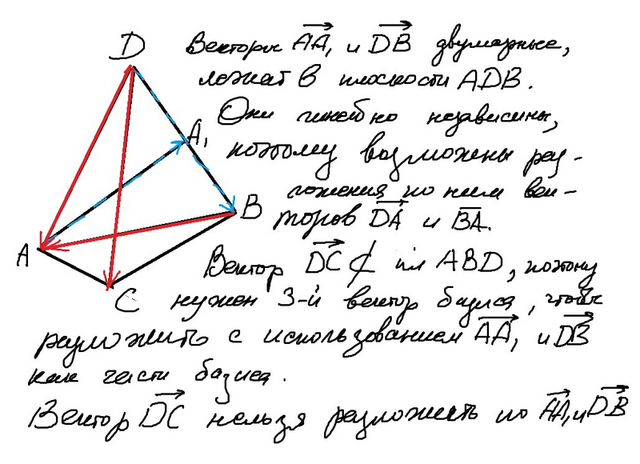 D
Векторы AA₁ и DB двумерные,
лежат в плоскости ADB.
Они линейно независимы,
A₁
поэтому возможны раз-
ложения по ним век-
B
торов DA и BA.
A
Вектор DC ⊄ пл ABD, поэтому
C
нужен 3-й вектор базиса, чтобы
разложить с использованием AA₁ и DB
как части базиса.
Вектор DC нельзя разложить по AA₁ и DB